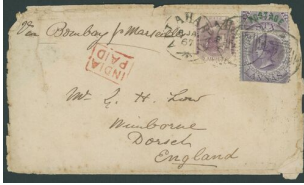 via Bombay & Marseilles
INDIA
PAID
AHABAD
67
POSTAGE
Mr. E. H. Low
Wimborne
Dorset
England